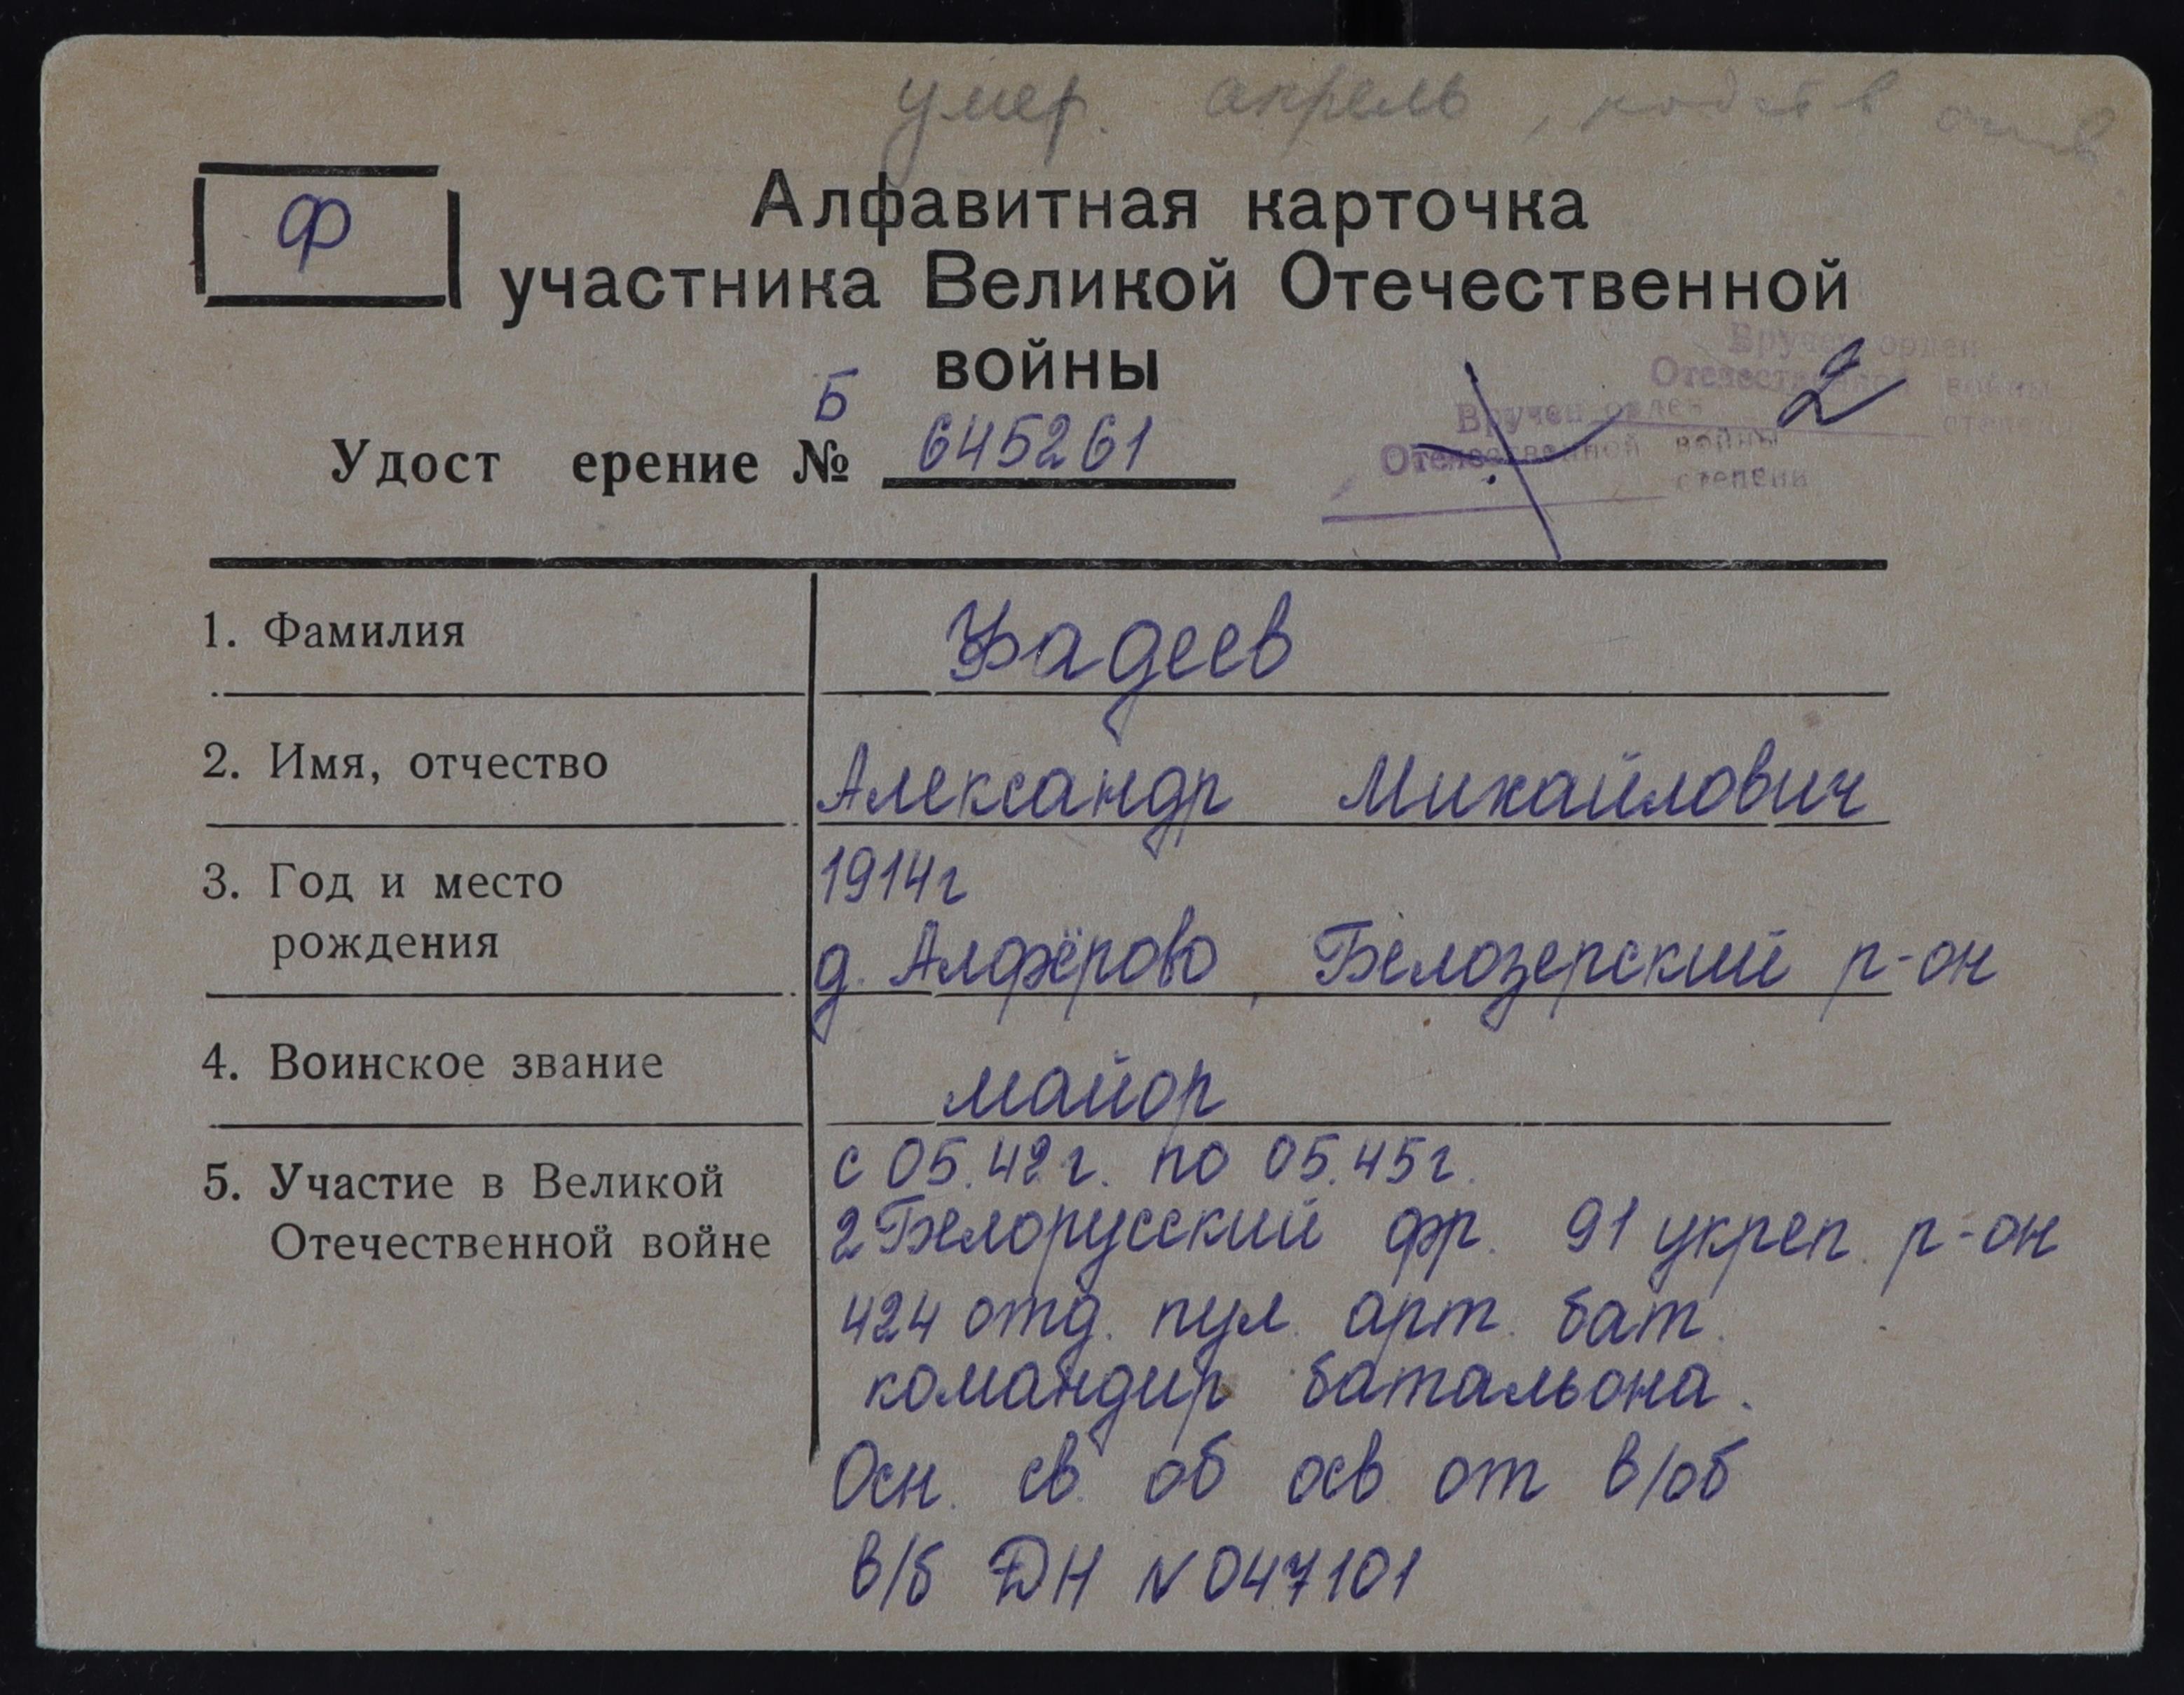 умер. апрель,
Ф
Алфавитная карточка
участника Великой Отечественной
войны
Вручен орден
Отечественной войны
2 степени
Вручен орден
Отечественной войны
степени
Б
Удост ерение № 645261
1. Фамилия Фадеев
2. Имя, отчество Александр Михайлович
3. Год и место 1914г
рождения д. Алфёрово, Белозерский р-он
4. Воинское звание майор
5. Участие в Великой с 05.42г. по 05.45г.
Отечественной войне 2 Белорусский фр. 91 укреп. р-он
424 отд. пул. арт. бат.
командир батальона.
Осн. св. об осв. от в/об
в/б ДН N 047101